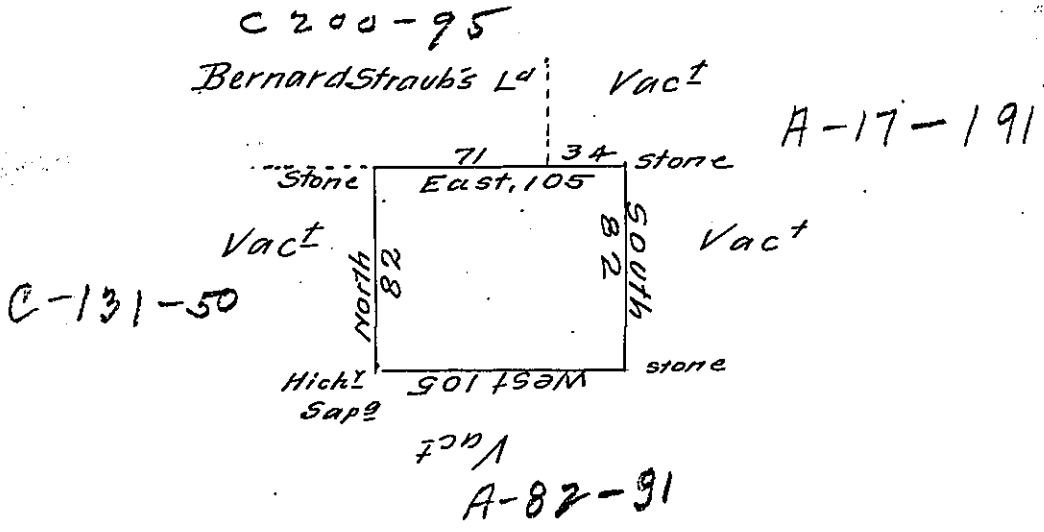 C 200-95
Bernard Straub's Ld
Vact
A-17-191
71
34
Stone
East, 105
Stone
Vact
North
82
South
82
Vact
C-131-50
Hichy
Sapg
West 105
Stone
Vact
A-82-91